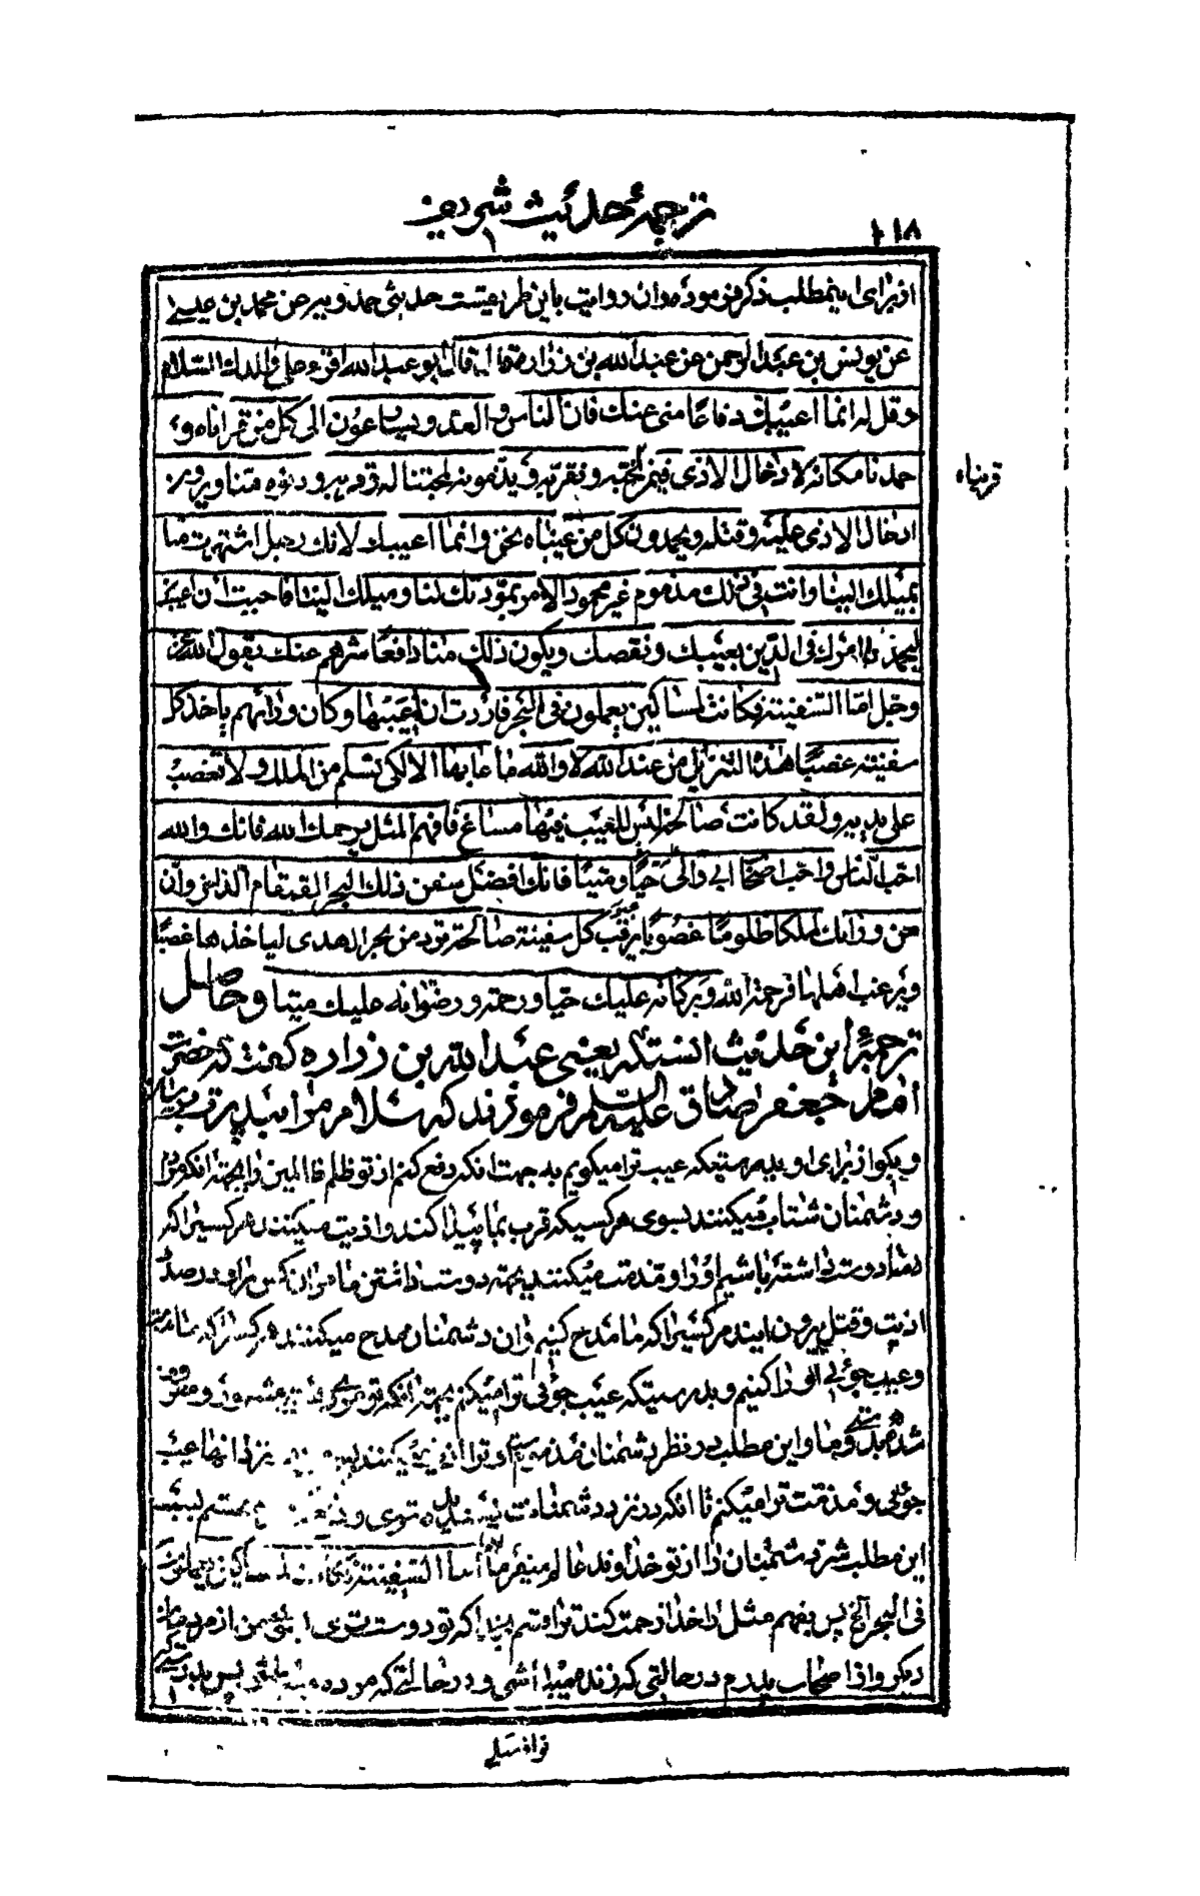 ترجمهٔ حدیث شریف
۱۱۸
از برای اینمطلب ذکر فرموده و ان روایت باین طریقیست حدثنی حمدویه عن محمد بن عیسی
عن یونس بن عبد الرحمن عن عبد الله بن زراره قال قال ابو عبد الله اقرء علی والدك السلام
و قل له انما اعیبك دفاعًا منی عنك فان الناس و العدو یسارعون الی کل من قربناه و
حمدنا مکانه لادخال الاذی فیمن نحبه و نقربه و یذمونه لمحبتنا له و قربه و دنوه منا و یرون
ادخال الاذی علیه و قتله و یحمدون کل من عیبناه نحن و انما اعیبك لانك رجل اشتهرت منا
بمیلك الینا و انت فی ذلك مذموم غیر محمود الامر بمودتك لنا و میلك الینا فاحببت ان اعیبك
لیحمدوا امرك فی الدین بعیبك و نقصك و یکون ذلك منا دافعًا شرهم عنك یقول الله عز
وجل اما السفینة فکانت لمساکین یعملون فی البحر فاردت ان اعیبها و کان ورائهم یاخذ کل
سفینة غصبًا هذا التنزیل من عند الله لا والله ما عابها الا لکی تسلم من الملك و لا تغصب
علی یدیه و لقد کانت صالحة لیس للعیب فیها مساغ فافهم المثل یرحمك الله فانك والله
احب الناس و احب اصحاب ابی والیّ حیًا و میتًا فانك افضل سفن ذلك البحر القمقام الذاخر و ان
من ورائك لملکا ظلومًا غصوبًا یرقب کل سفینة صالحة ترد من بحر الهدی لیاخذها غصبًا
و یغصب اهلها فرحمة الله و برکاته علیك حیا و رحمته و رضوانه علیك میتا و حاصل
ترجمهٔ این حدیث انستکه یعنی عبد الله بن زراره گفت که حضرت
امام جعفر صادق علیه السلم فرمودند که سلام مرا به پدرت برسان
و بگو از برای او بدرستیکه عیب ترا میگویم به جهت انکه دفع کنم از تو ظلم ظالمین را بجهة انکه مردم
و دشمنان شتاب میکنند بسوی هر کسیکه قرب بما پیدا کند و اذیت میکنند هر کسیرا که
ما دوست داشته باشیم او را و مذمت میکنند بجهة دوست داشتن ما مر ان کس را و در صدد
اذیت و قتل بیرون ایند مر کسیرا که ما مدح کنیم و ان دشمنان مدح میکنند هر کسرا که ما مذمت
و عیب جوئی او را کنیم و بدرستیکه عیب جوئی ترا میکنم بجهة انکه تو مردی
شده بدوستی و ما و این مطلب در نظر دشمنان مذموم و ترا اذیت میکنند نزد انها عیب
جوئی و مذمت ترا میکنم تا انکه در نزد دشمنانت پسندیده شوی بسبب
این مطلب شر دشمنان را از تو خداوند عالم میفرماید اما السفینة فکانت لمساکین یعملون
فی البحر الخ پس بفهم مثل را خدا رحمت کند ترا قسم بخدا که تو دوست تری پیش من از مردمان
دیگر و از اصحاب پدرم در حالتی که زنده باشی و در حالتی که مرده باشی پس بدرستیکه
قربناه
تو افضلی